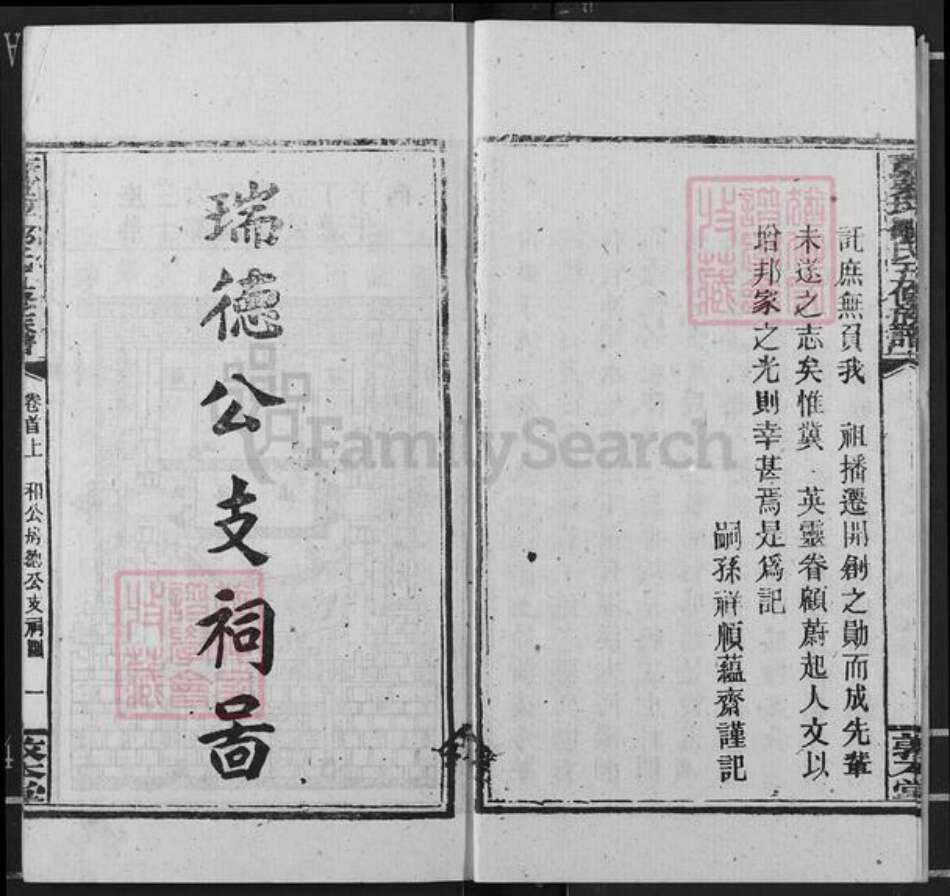 託庶無負我 祖播遷開創之勛而成先輩
未送之志矣惟冀 英靈眷顧蔚起人文以
增邦家之光則幸甚焉是爲記
嗣孫祥順蘊齋謹記
瑞德公支祠啚
卷首上
一
收藏
收藏
FamilySearch